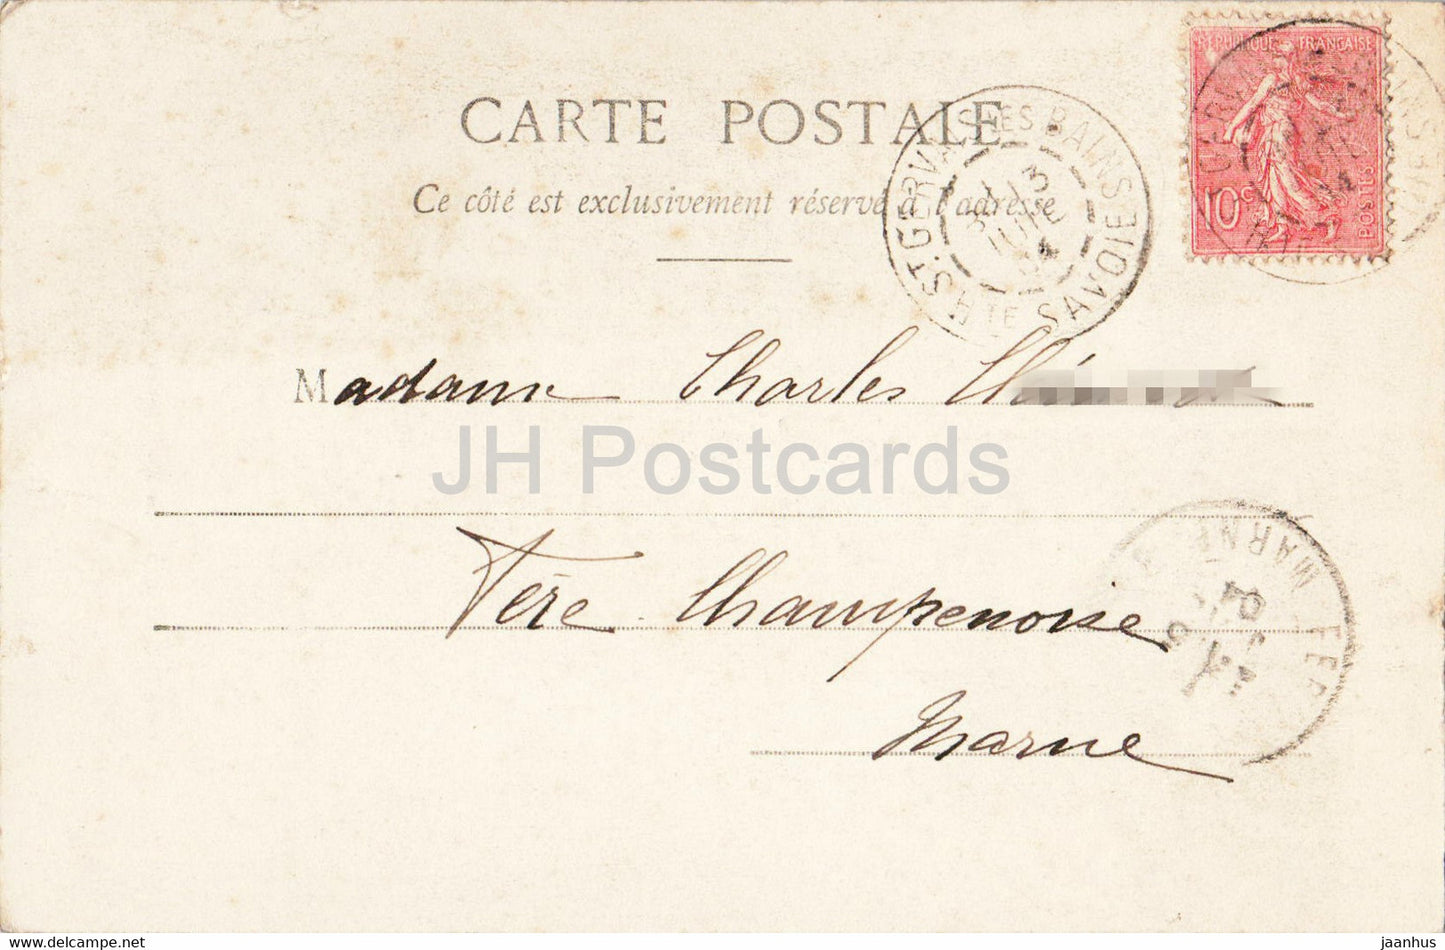 RÉPUBLIQUE FRANÇAISE
10c
POSTES
CARTE POSTALE
Ce côté est exclusivement réservé à l'adresse
ST. GERVAIS LES BAINS
13
JUIL
04
HTE SAVOIE
Madame Charles
JH Postcards
Fère Champenoise
Marne
MARNE
04
www.delcampe.net
jaanhus